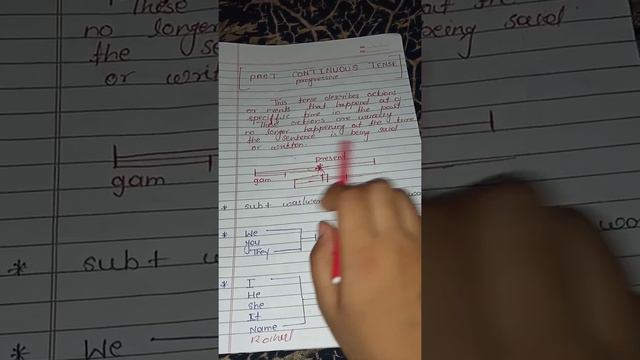 PAST CONTINUOUS TENSE
progressive
This tense describes actions
or events that happend at a
speciffic time in the past
These actions are usually
no longer happening at the time
the sentence is being said
or written.
present
gam
* sub+ was/wer
* We
You
They
* I
He
She
It
Name
Rahul